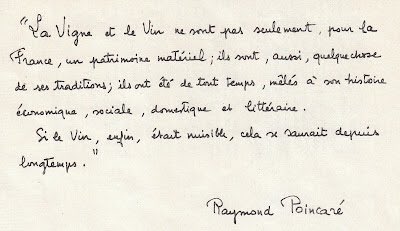 "La Vigne et le Vin ne sont pas seulement, pour la
France, un patrimoine matériel ; ils sont, aussi, quelque chose
de ses traditions ; ils ont été de tout temps, mêlés à son histoire
économique, sociale, domestique et littéraire.
Si le Vin, enfin, était nuisible, cela se saurait depuis
longtemps."
Raymond Poincaré